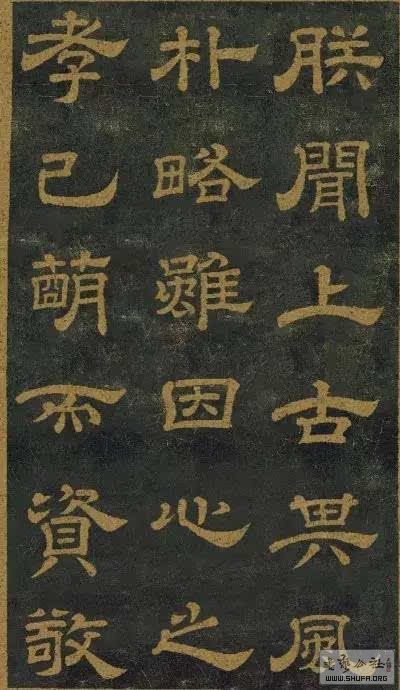 朕聞上古其風
朴略雖因心之
孝已萌而資敬
書藝公社
WWW.SHUFA.ORG